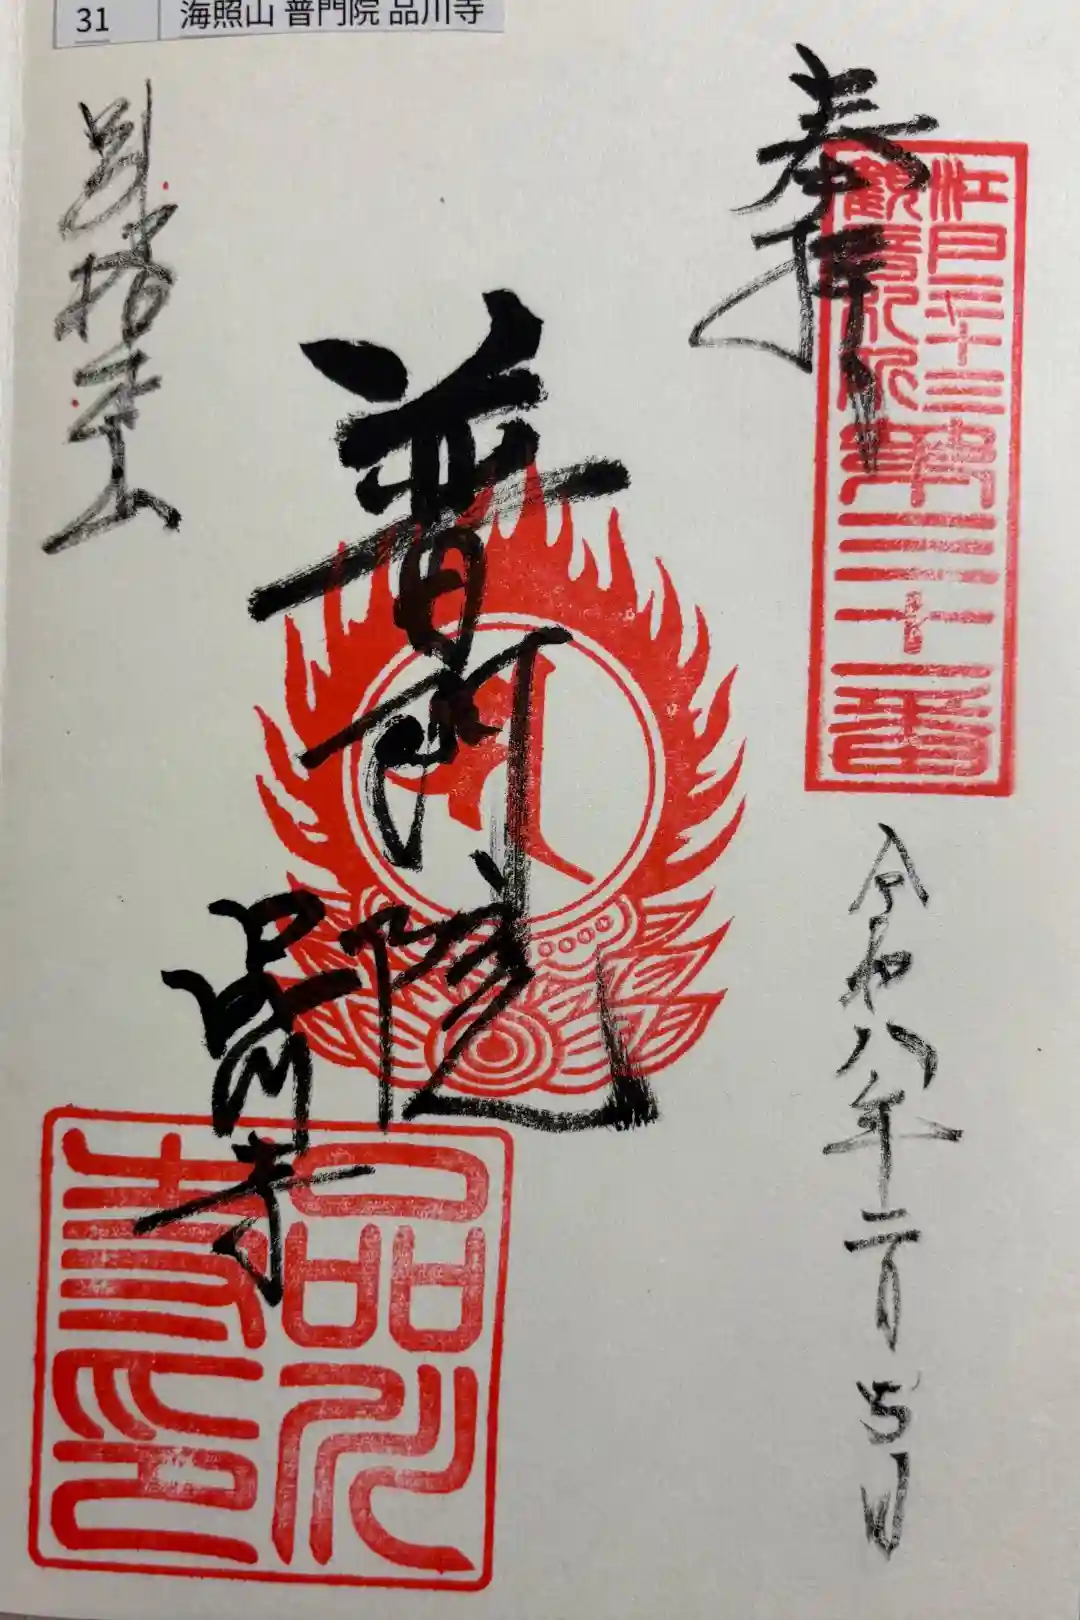 31 海照山 普門院 品川寺
奉拝
江戸三十三
観音札所
第三十一番
令和八年二月五日
普門院
品川寺
別格本山
品川
寺印